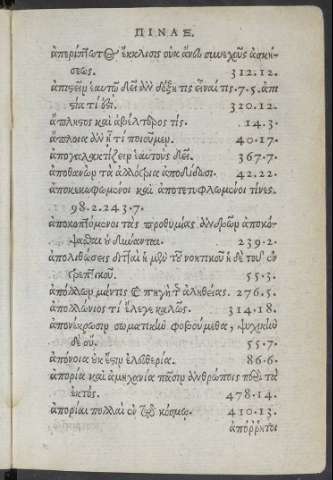 ΠΙΝΑΞ.
ἀπερίπτωτος ἔκκλισις οὐκ ἄνευ συνεχοῦς ἀσκή-
σεως. 312.12.
ἀπιστεῖν ἑαυτῷ δεῖ ἂν δόξῃ τις εἶναί τις. 7.5. ἀπι
στία τί ὅτι. 320.12.
ἄπληστος καὶ ἀβέλτερος τίς. 14.3.
ἄπλοια ἂν ᾖ τί ποιοῦμεν. 40.17.
ἀπογαλακτίζειν ἑαυτοὺς δεῖ. 367.7.
ἀποθανὼν τὰ ἀλλότρια ἀποδίδωσι. 42.22.
ἀποκεκωφωμένοι καὶ ἀποτετυφλωμένοι τίνες.
98.2.243.7.
ἀποκοπτόμενοι τὰς προθυμίας ἀνδρῶν ἀποκό-
ψασθαι οὐ δύνανται. 239.2.
ἀπολιθώσεις διτταὶ ἡ μὲν τοῦ νοητικοῦ ἡ δὲ τοῦ ἐν
τρεπτικοῦ. 55.3.
ἀπόλλων μάντις καὶ πηγὴ τῆς ἀληθείας. 276.5.
ἀπολλώνιος τί ἔλεγε καλῶς. 314.18.
ἀπονέκρωσιν σωματικὴν φοβούμεθα, ψυχικὴν
δὲ οὔ. 55.7.
ἀπόνοια οὐκ ἔστιν ἐλευθερία. 86.6.
ἀπορία καὶ ἀμηχανία πᾶσιν ἀνθρώποις περὶ τὰ
ἐκτός. 478.14.
ἀπορίαι πολλαὶ ἐν τῷ κόσμῳ. 410.13.
ἀπόῤῥητοι